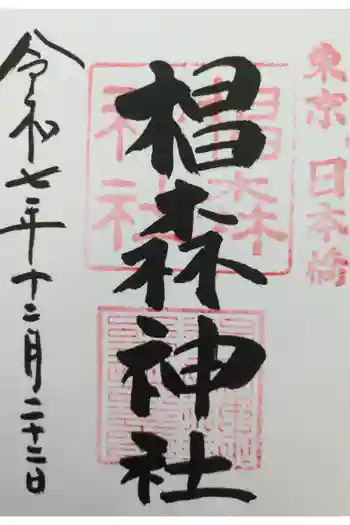 東京、日本橋
椙森神社
椙森神社
令和七年十二月二十二日